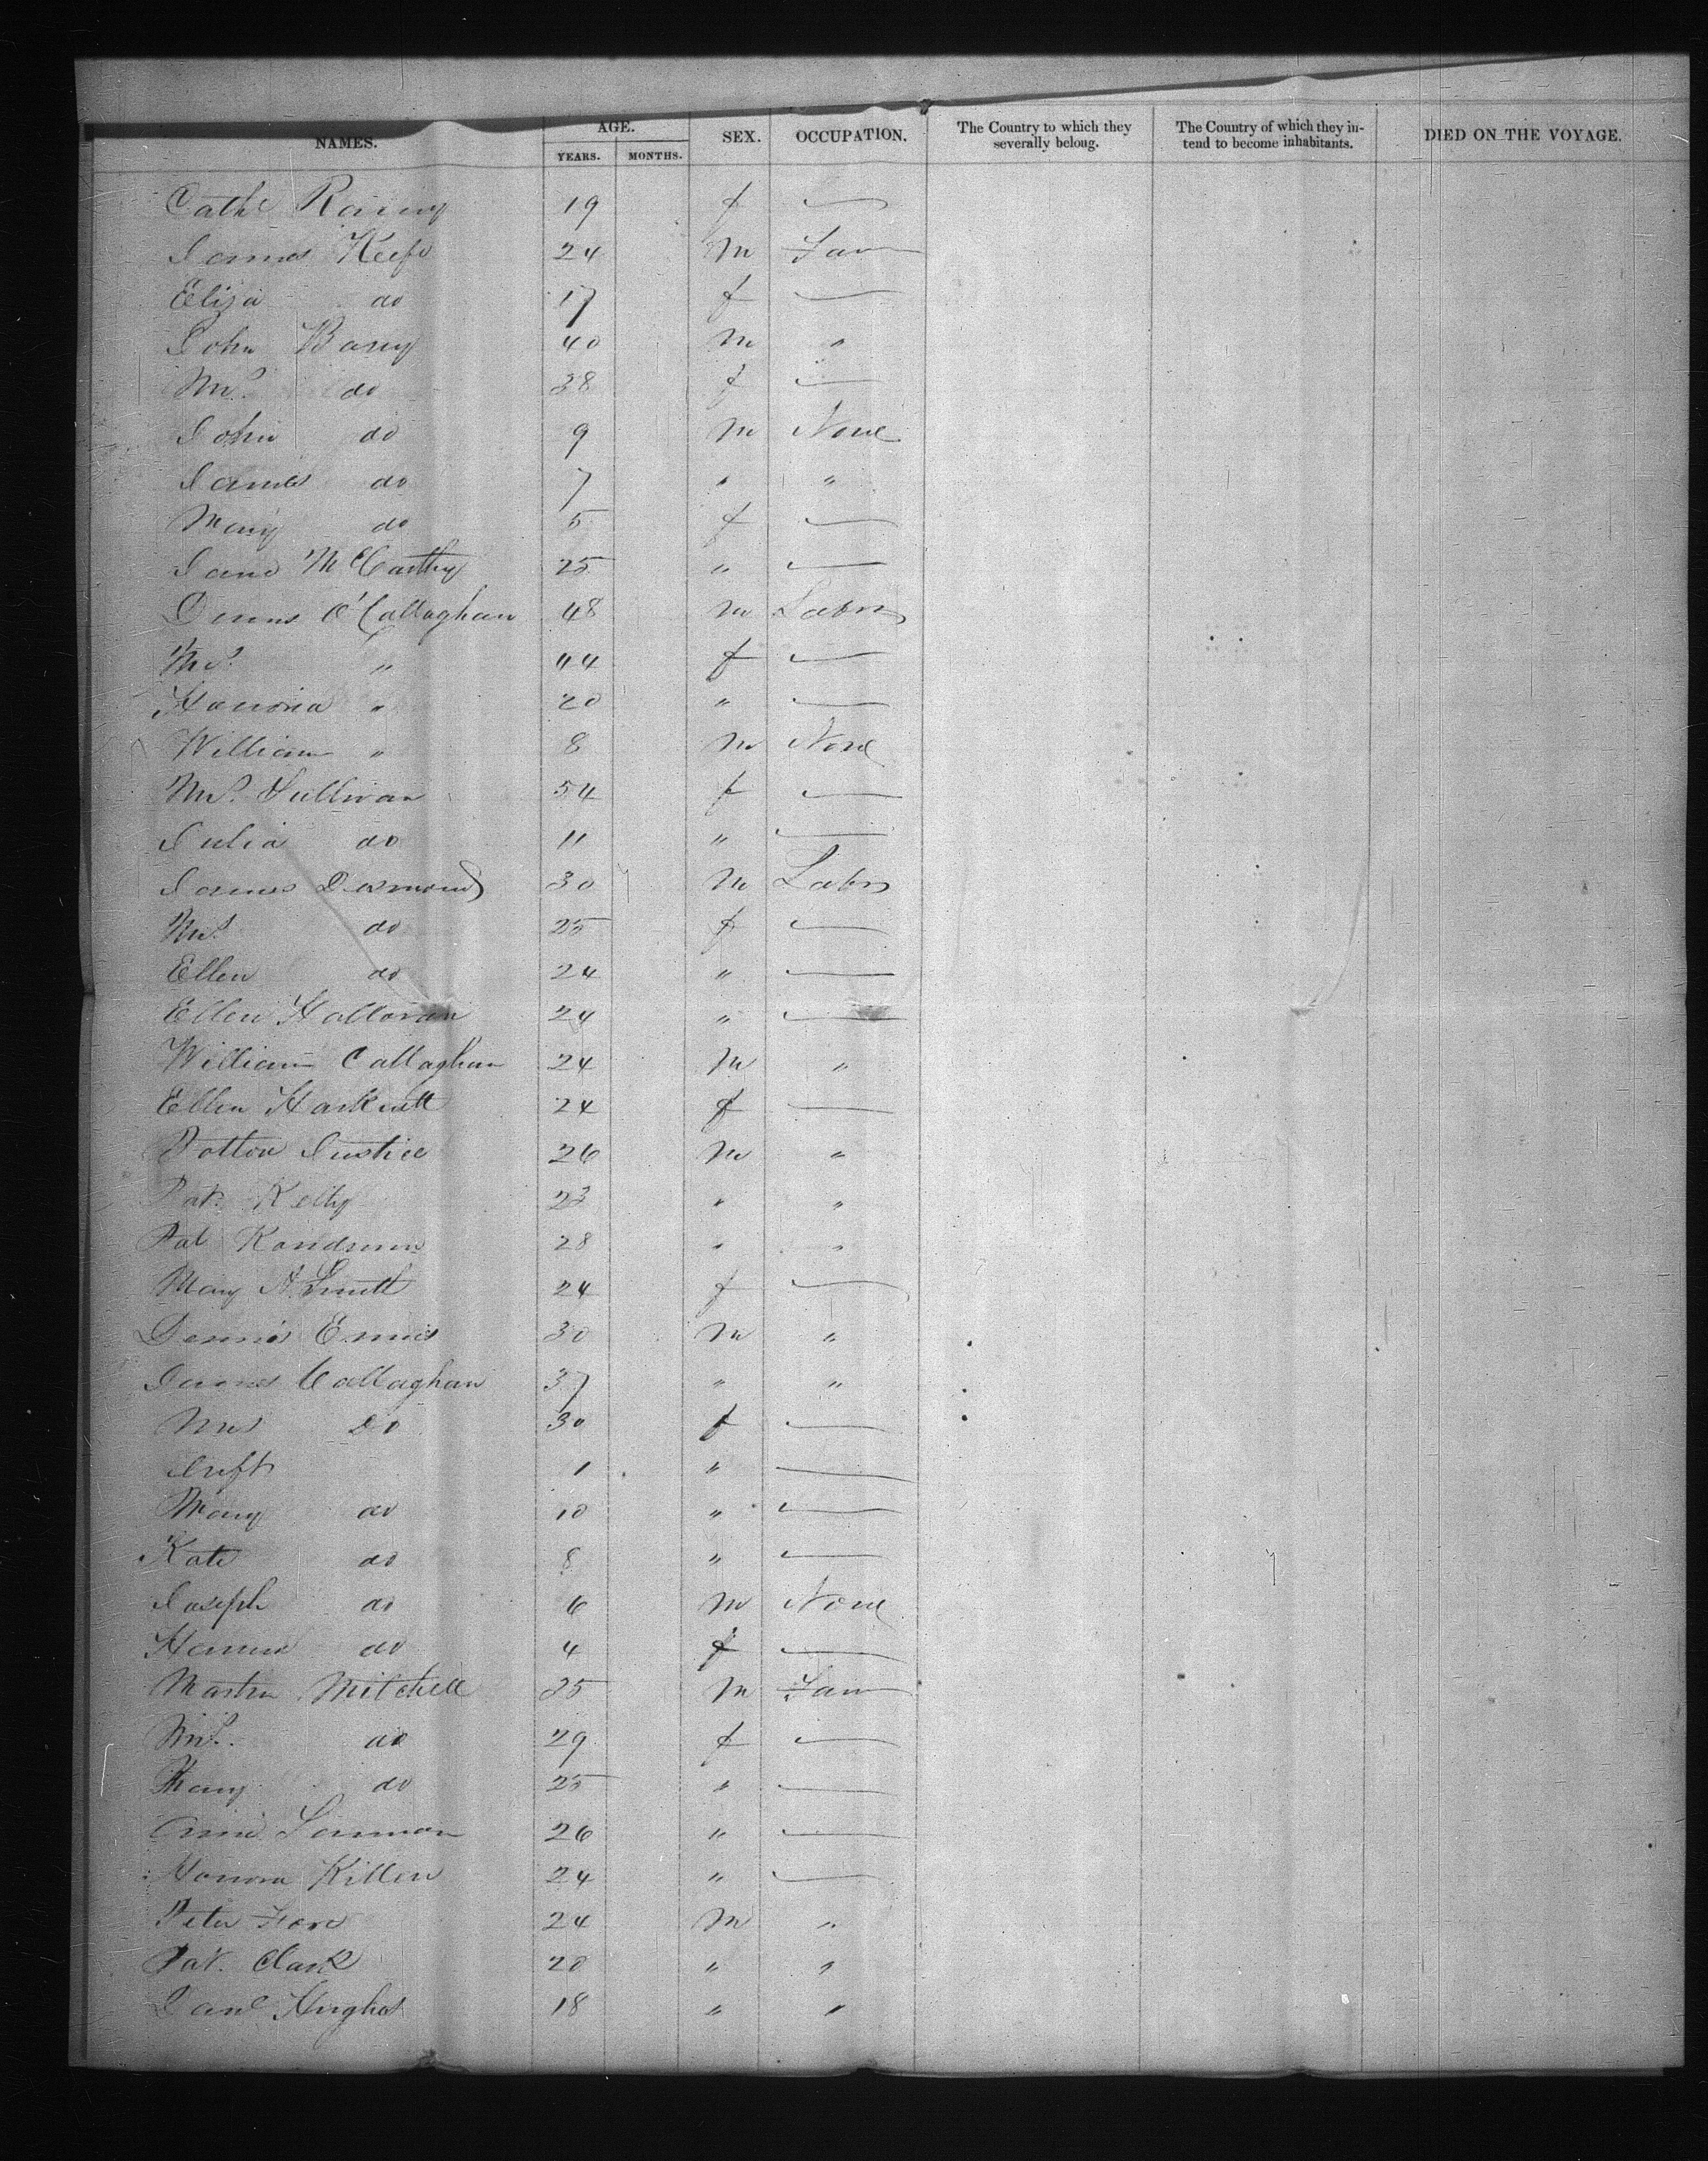 NAMES. AGE. YEARS. MONTHS. SEX. OCCUPATION. The Country to which they severally belong. The Country of which they intend to become inhabitants. DIED ON THE VOYAGE.
Cathe 19 f —
James Keefe 24 m Farm
Eliza do 17 f —
John Barry 40 m "
Mrs. do 38 f —
John do 9 m None
James do 7 " "
Mary do 5 f —
Jane McCarthy 25 " —
Dennis O'Callaghan 48 m Labr
Mrs. " 44 f —
Hanoria " 20 " —
William " 8 m None
Mrs. Sullivan 54 f —
Julia do 11 " —
James Desmond 30 m Labr
Mrs. do 25 f —
Ellen do 24 " —
Ellen Halloran 24 " —
William Callaghan 24 m "
Ellen Harknett 24 f —
Justice 26 m "
Pat. Kelly 23 " "
Pat 28 " "
Mary A. Smith 24 f —
Dennis Ennis 30 m "
James Callaghan 37 " "
Mrs Do 30 f —
Inft 1 " —
Mary do 10 " —
Kate do 8 " —
Joseph do 6 m None
do 4 f —
Martin Mitchell 35 m Farm
Mrs. do 29 f —
Mary do 25 " —
26 " —
Honora Killen 24 " —
Peter 24 m "
Pat. Clark 20 " "
Hughes 18 " "